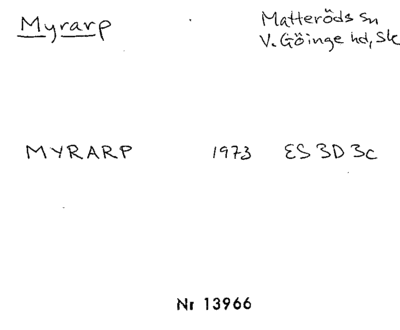 Myrarp
Matteröds sn
V. Göinge hd, Sk
MYRARP 1973 ES 3D 3c
Nr 13966